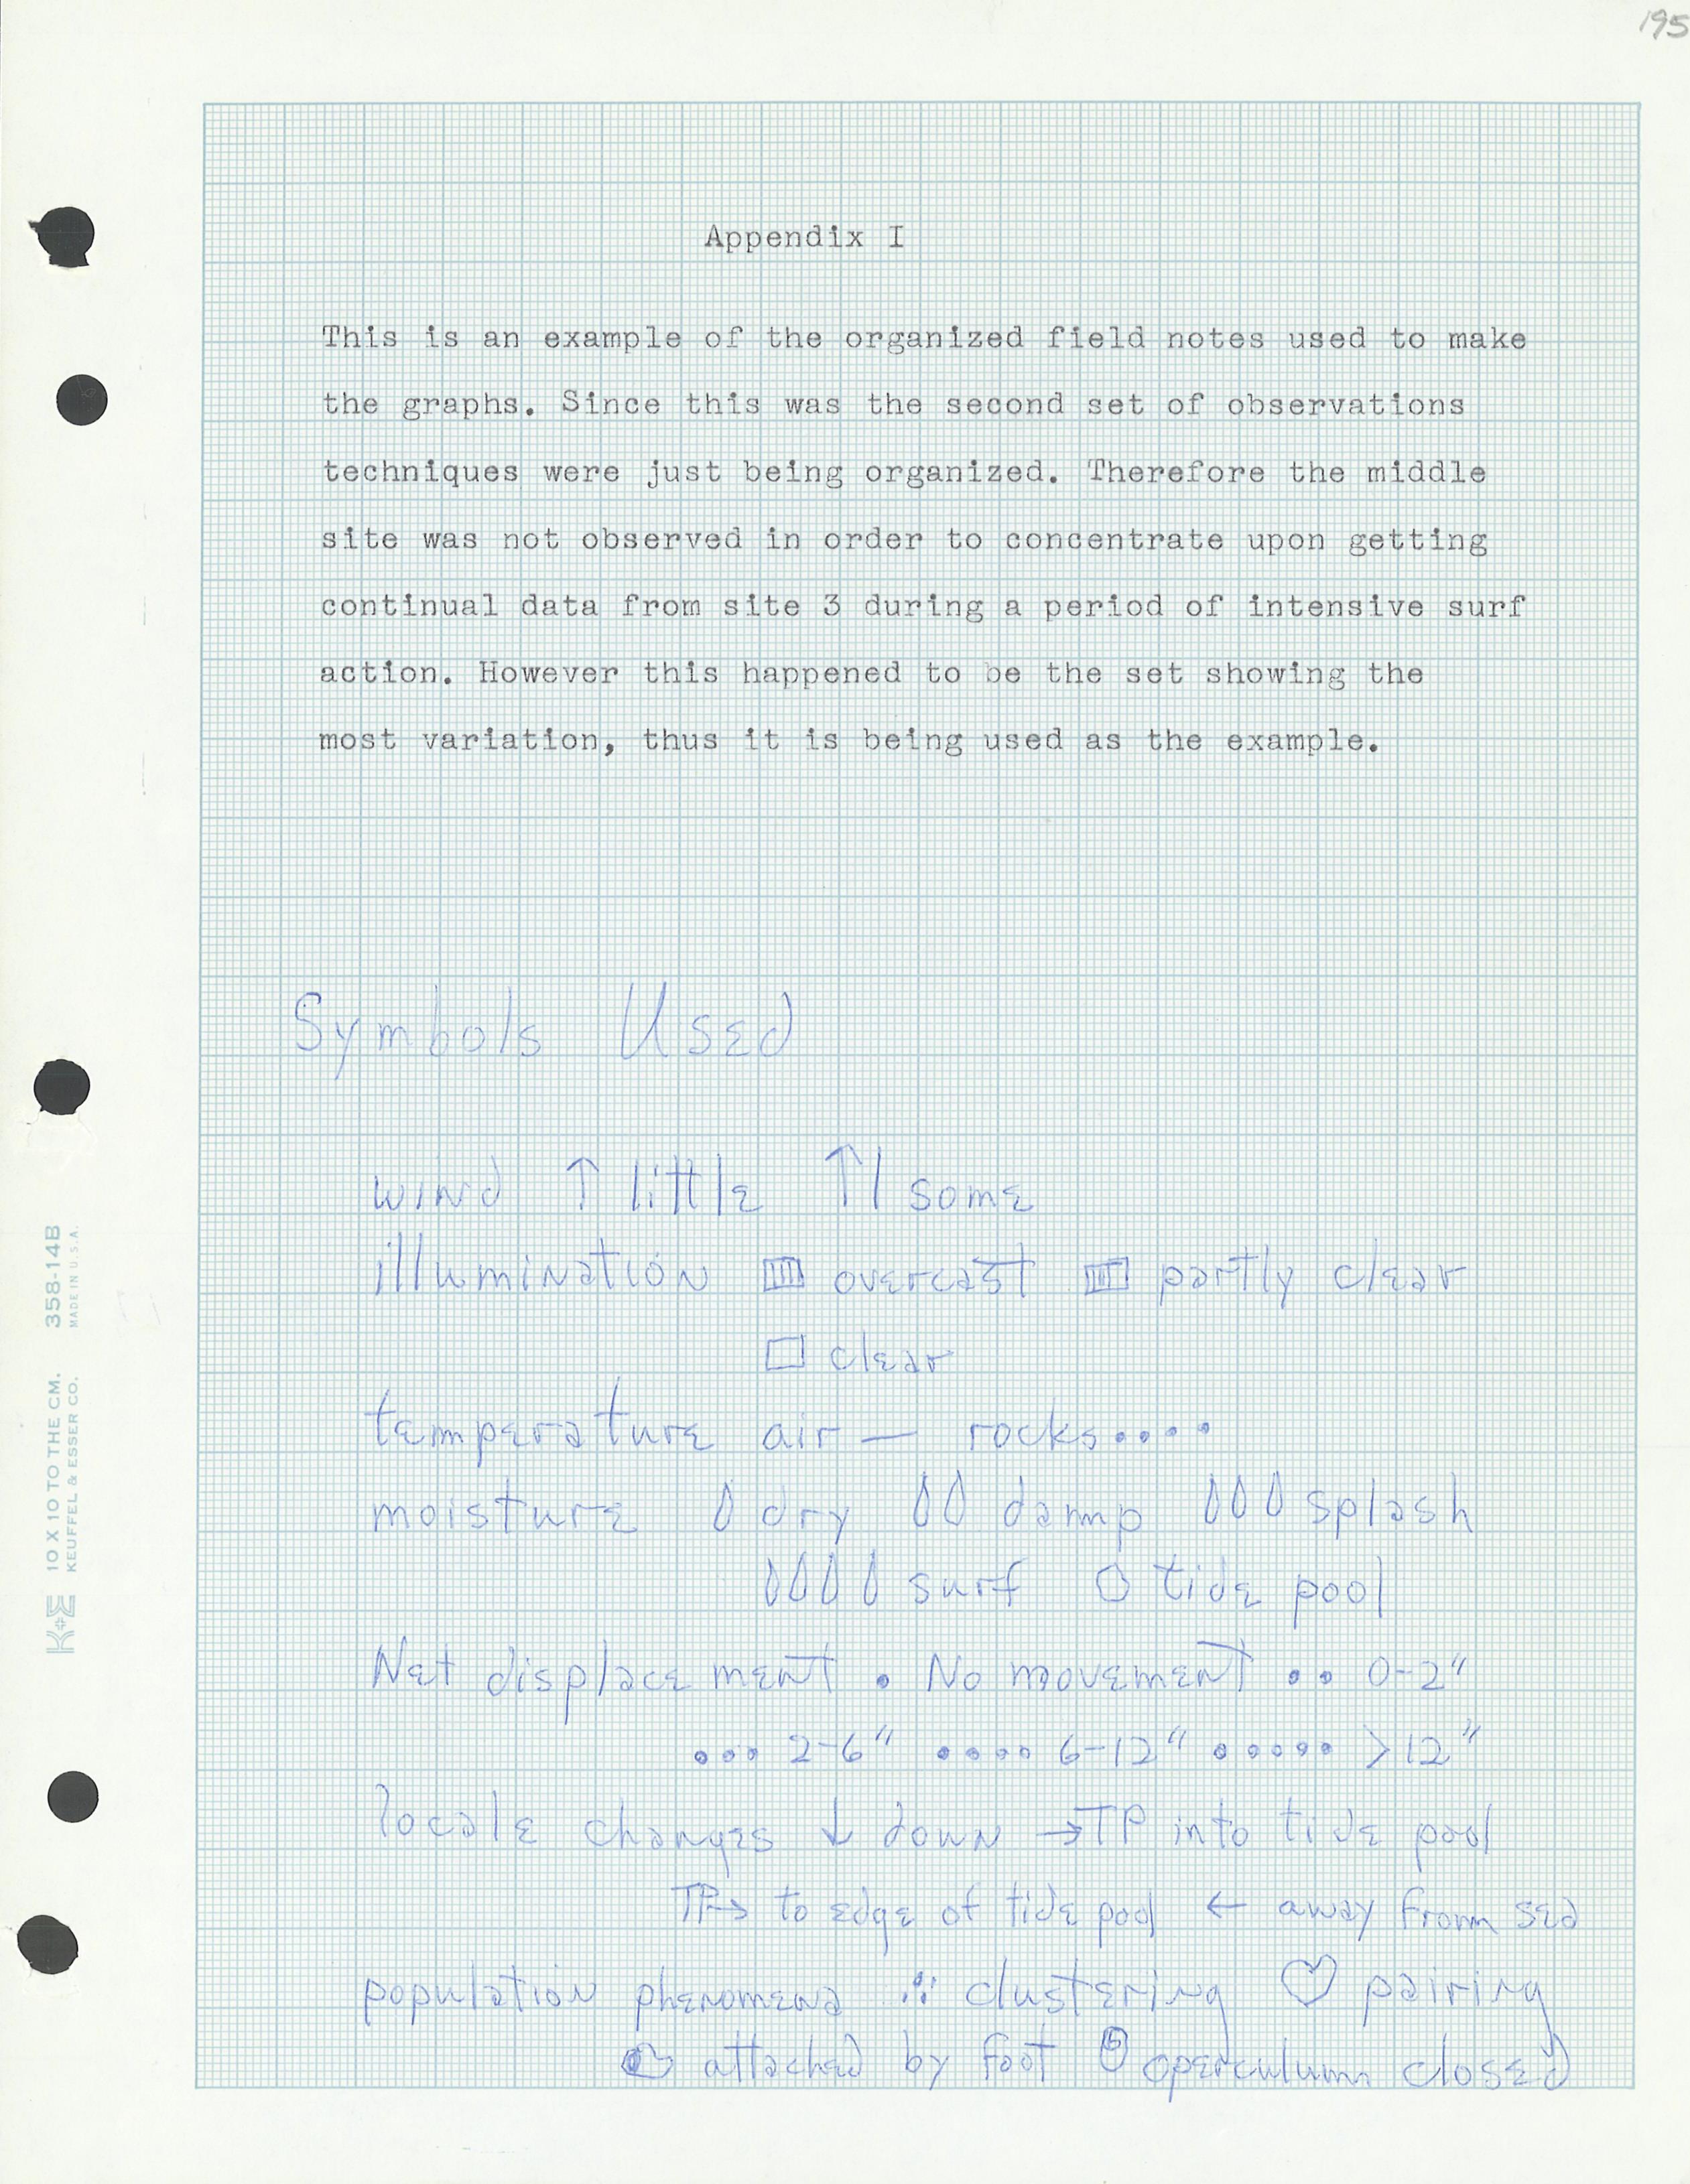 195
Appendix I
This is an example of the organized field notes used to make
the graphs. Since this was the second set of observations
techniques were just being organized. Therefore the middle
site was not observed in order to concentrate upon getting
continual data from site 3 during a period of intensive surf
action. However this happened to be the set showing the
most variation, thus it is being used as the example.
Symbols Used
wind ↑ little ↑| some
illumination overcast partly clear
□ clear
temperature air — rocks....
moisture 0 dry 00 damp 000 splash
0000 surf O tide pool
Net displacement • No movement •• 0-2"
••• 2-6" •••• 6-12" ••••• >12"
locale changes ↓ down →TP into tide pool
TP→ to edge of tide pool ← away from sea
population phenomena clustering ♡ pairing
attached by foot operculum closed
K+E 10 X 10 TO THE CM. 358-14B
KEUFFEL & ESSER CO. MADE IN U.S.A.